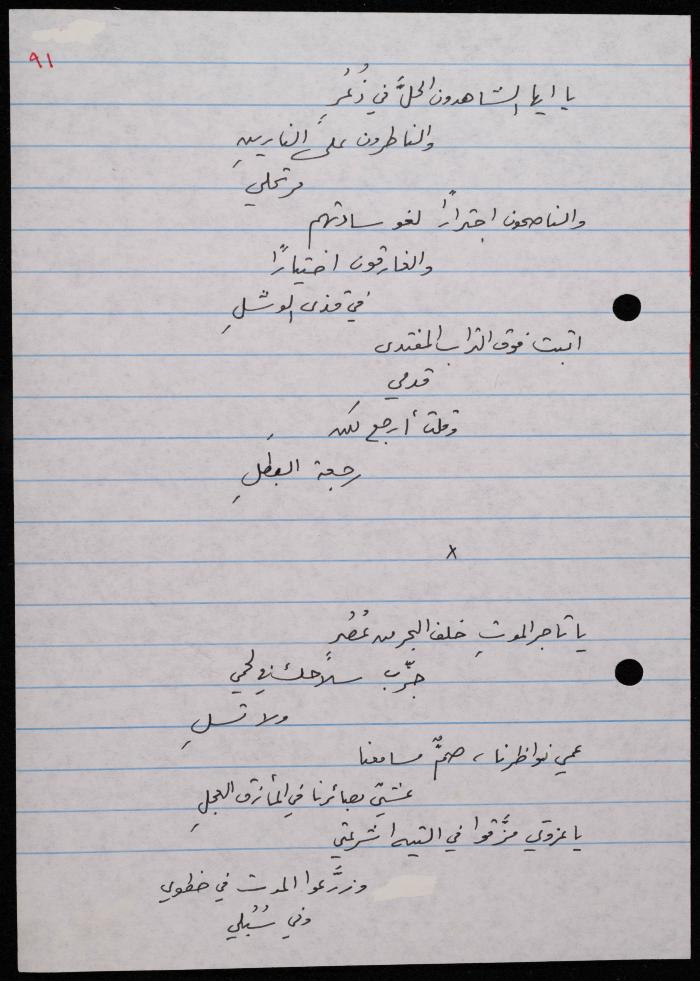 ٩١
يا ايها الشاهدون الحلَّ في ذُعُرِ
والناطرون على النارين
مرتحلي
والناصحون اجترارًا لغو سادتهم
والغارقون اختيارًا
في قذى الوشلِ
اثبت فوق التراب المفتدى
قدمي
وقلت أرجع لكن
رجعة البطلِ
x
يا تاجر الموتِ خلف البحر من عُصُر
جرّب سلاحك في لحمي
ولا تسلِ
عمي نواظرنا، صمٌّ مسامعنا
عشيٌ بصائرنا في المأزق العجلِ
يا عزوتي مزّقوا في التيه اشرعتي
وزرَّعوا الموت في خطوي
وفي سُبُلي